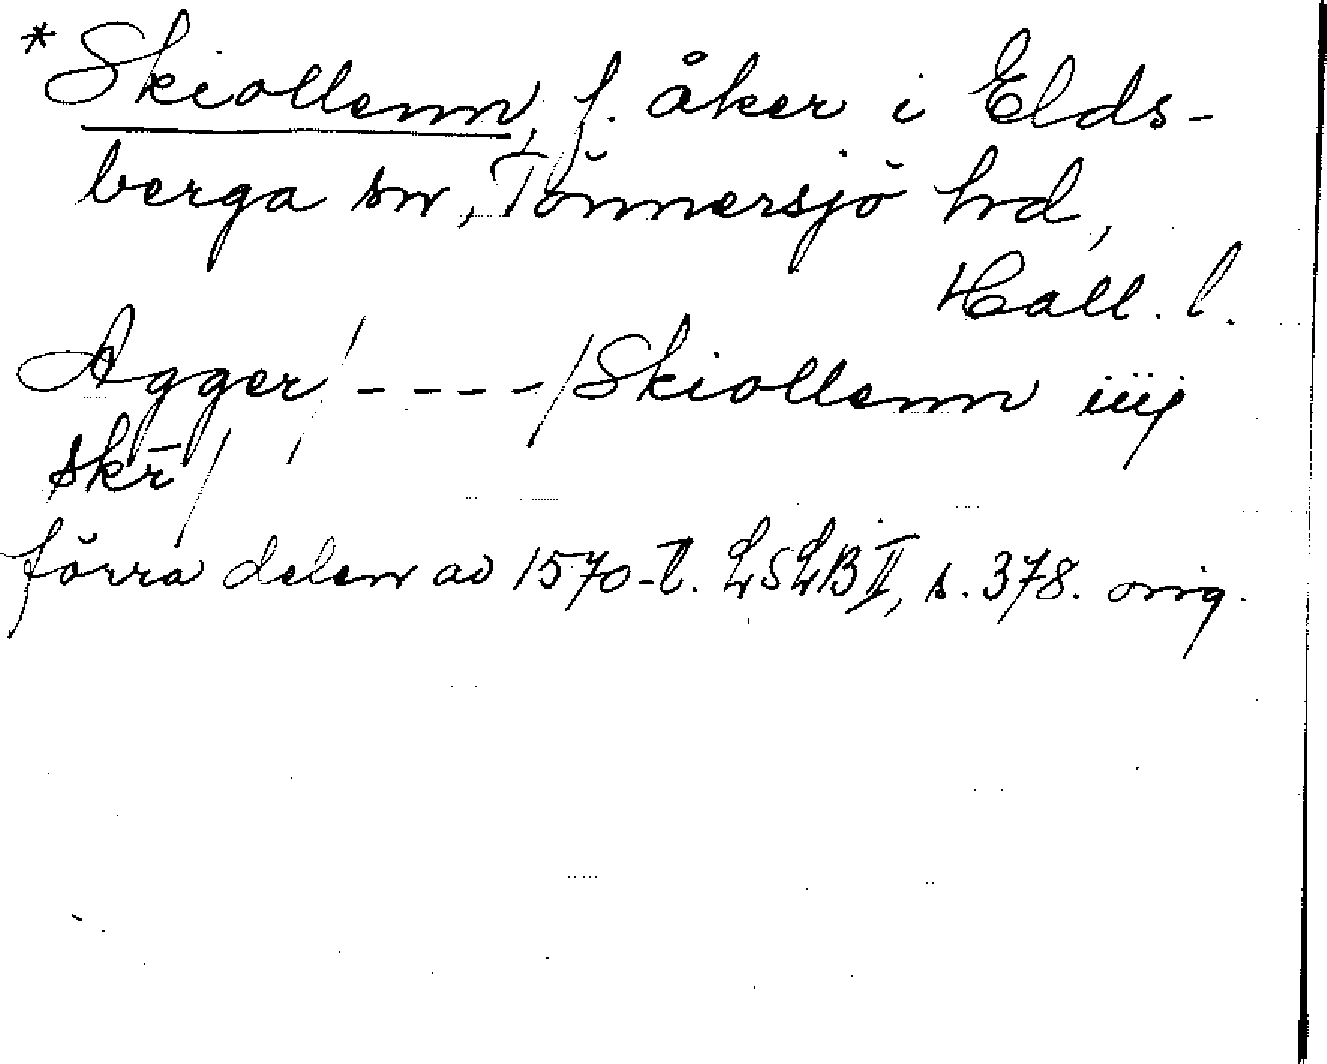 *Skiollenn, f. åker i Elds-
berga sn, Tönnersjö hd,
Hall. l.
Agger / - - - - / Skiollenn iiij
skr̄ /
förra delen av 1570-t. LSLB II, s. 378. orig.